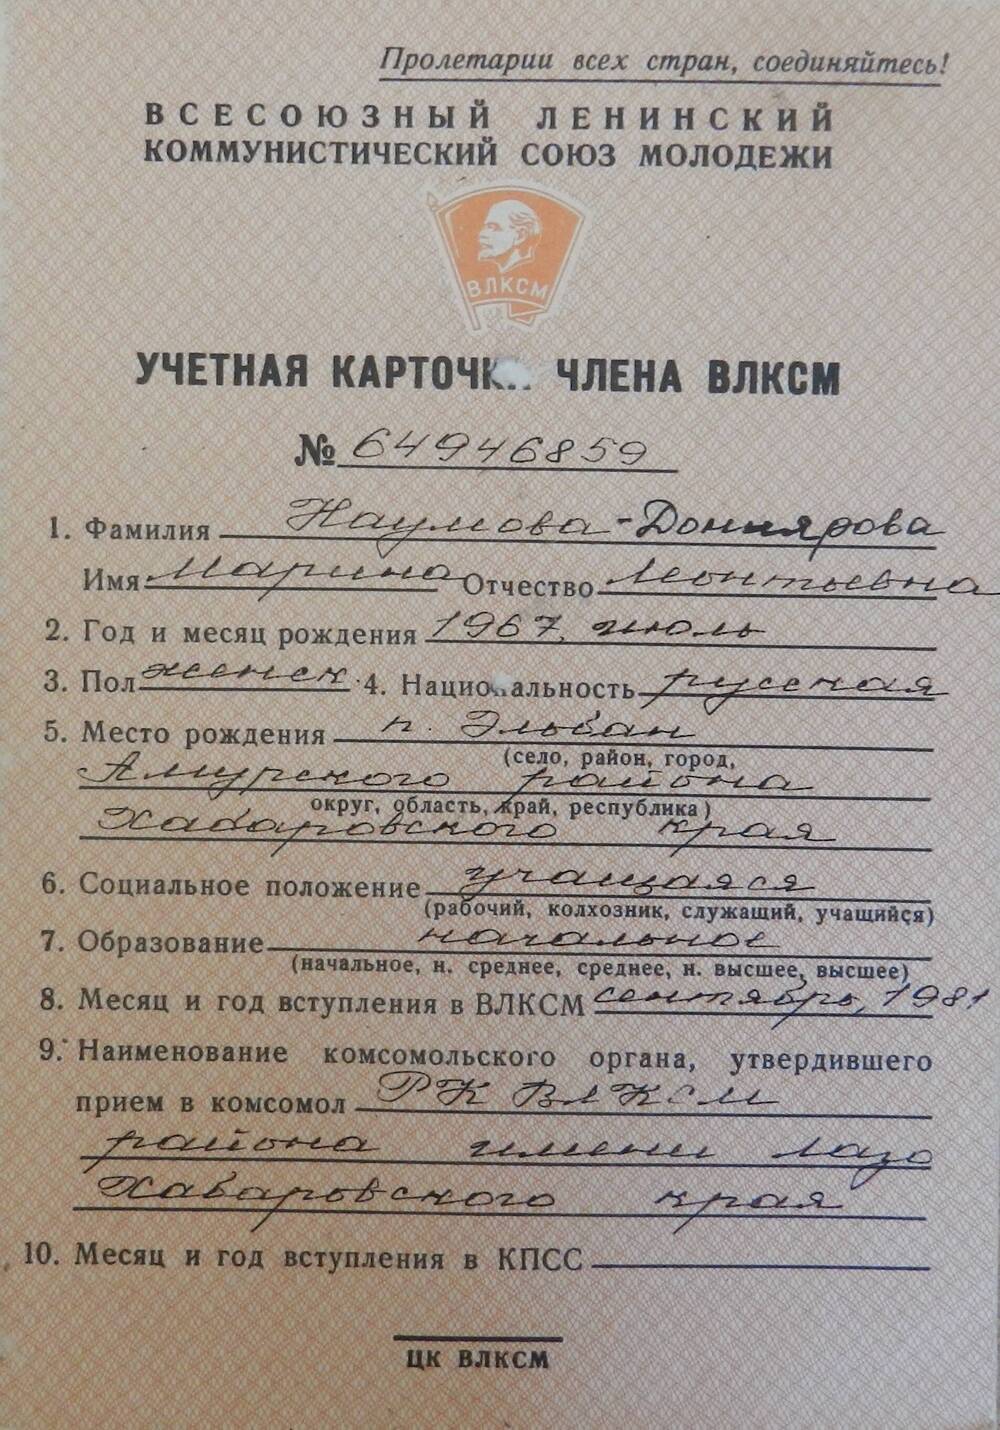 Пролетарии всех стран, соединяйтесь!
ВСЕСОЮЗНЫЙ ЛЕНИНСКИЙ
КОММУНИСТИЧЕСКИЙ СОЮЗ МОЛОДЕЖИ
ВЛКСМ
УЧЕТНАЯ КАРТОЧКА ЧЛЕНА ВЛКСМ
№ 64946859
1. Фамилия Наумова-Дониярова
Имя Марина Отчество Леонтьевна
2. Год и месяц рождения 1967, июль
3. Пол женск. 4. Национальность русская
5. Место рождения п. Эльбан
(село, район, город,
Амурского района
округ, область, край, республика)
Хабаровского края
6. Социальное положение учащаяся
(рабочий, колхозник, служащий, учащийся)
7. Образование начальное
(начальное, н. среднее, среднее, н. высшее, высшее)
8. Месяц и год вступления в ВЛКСМ сентябрь, 1981
9. Наименование комсомольского органа, утвердившего
прием в комсомол РК ВЛКСМ
района имени Лазо
Хабаровского края
10. Месяц и год вступления в КПСС
ЦК ВЛКСМ